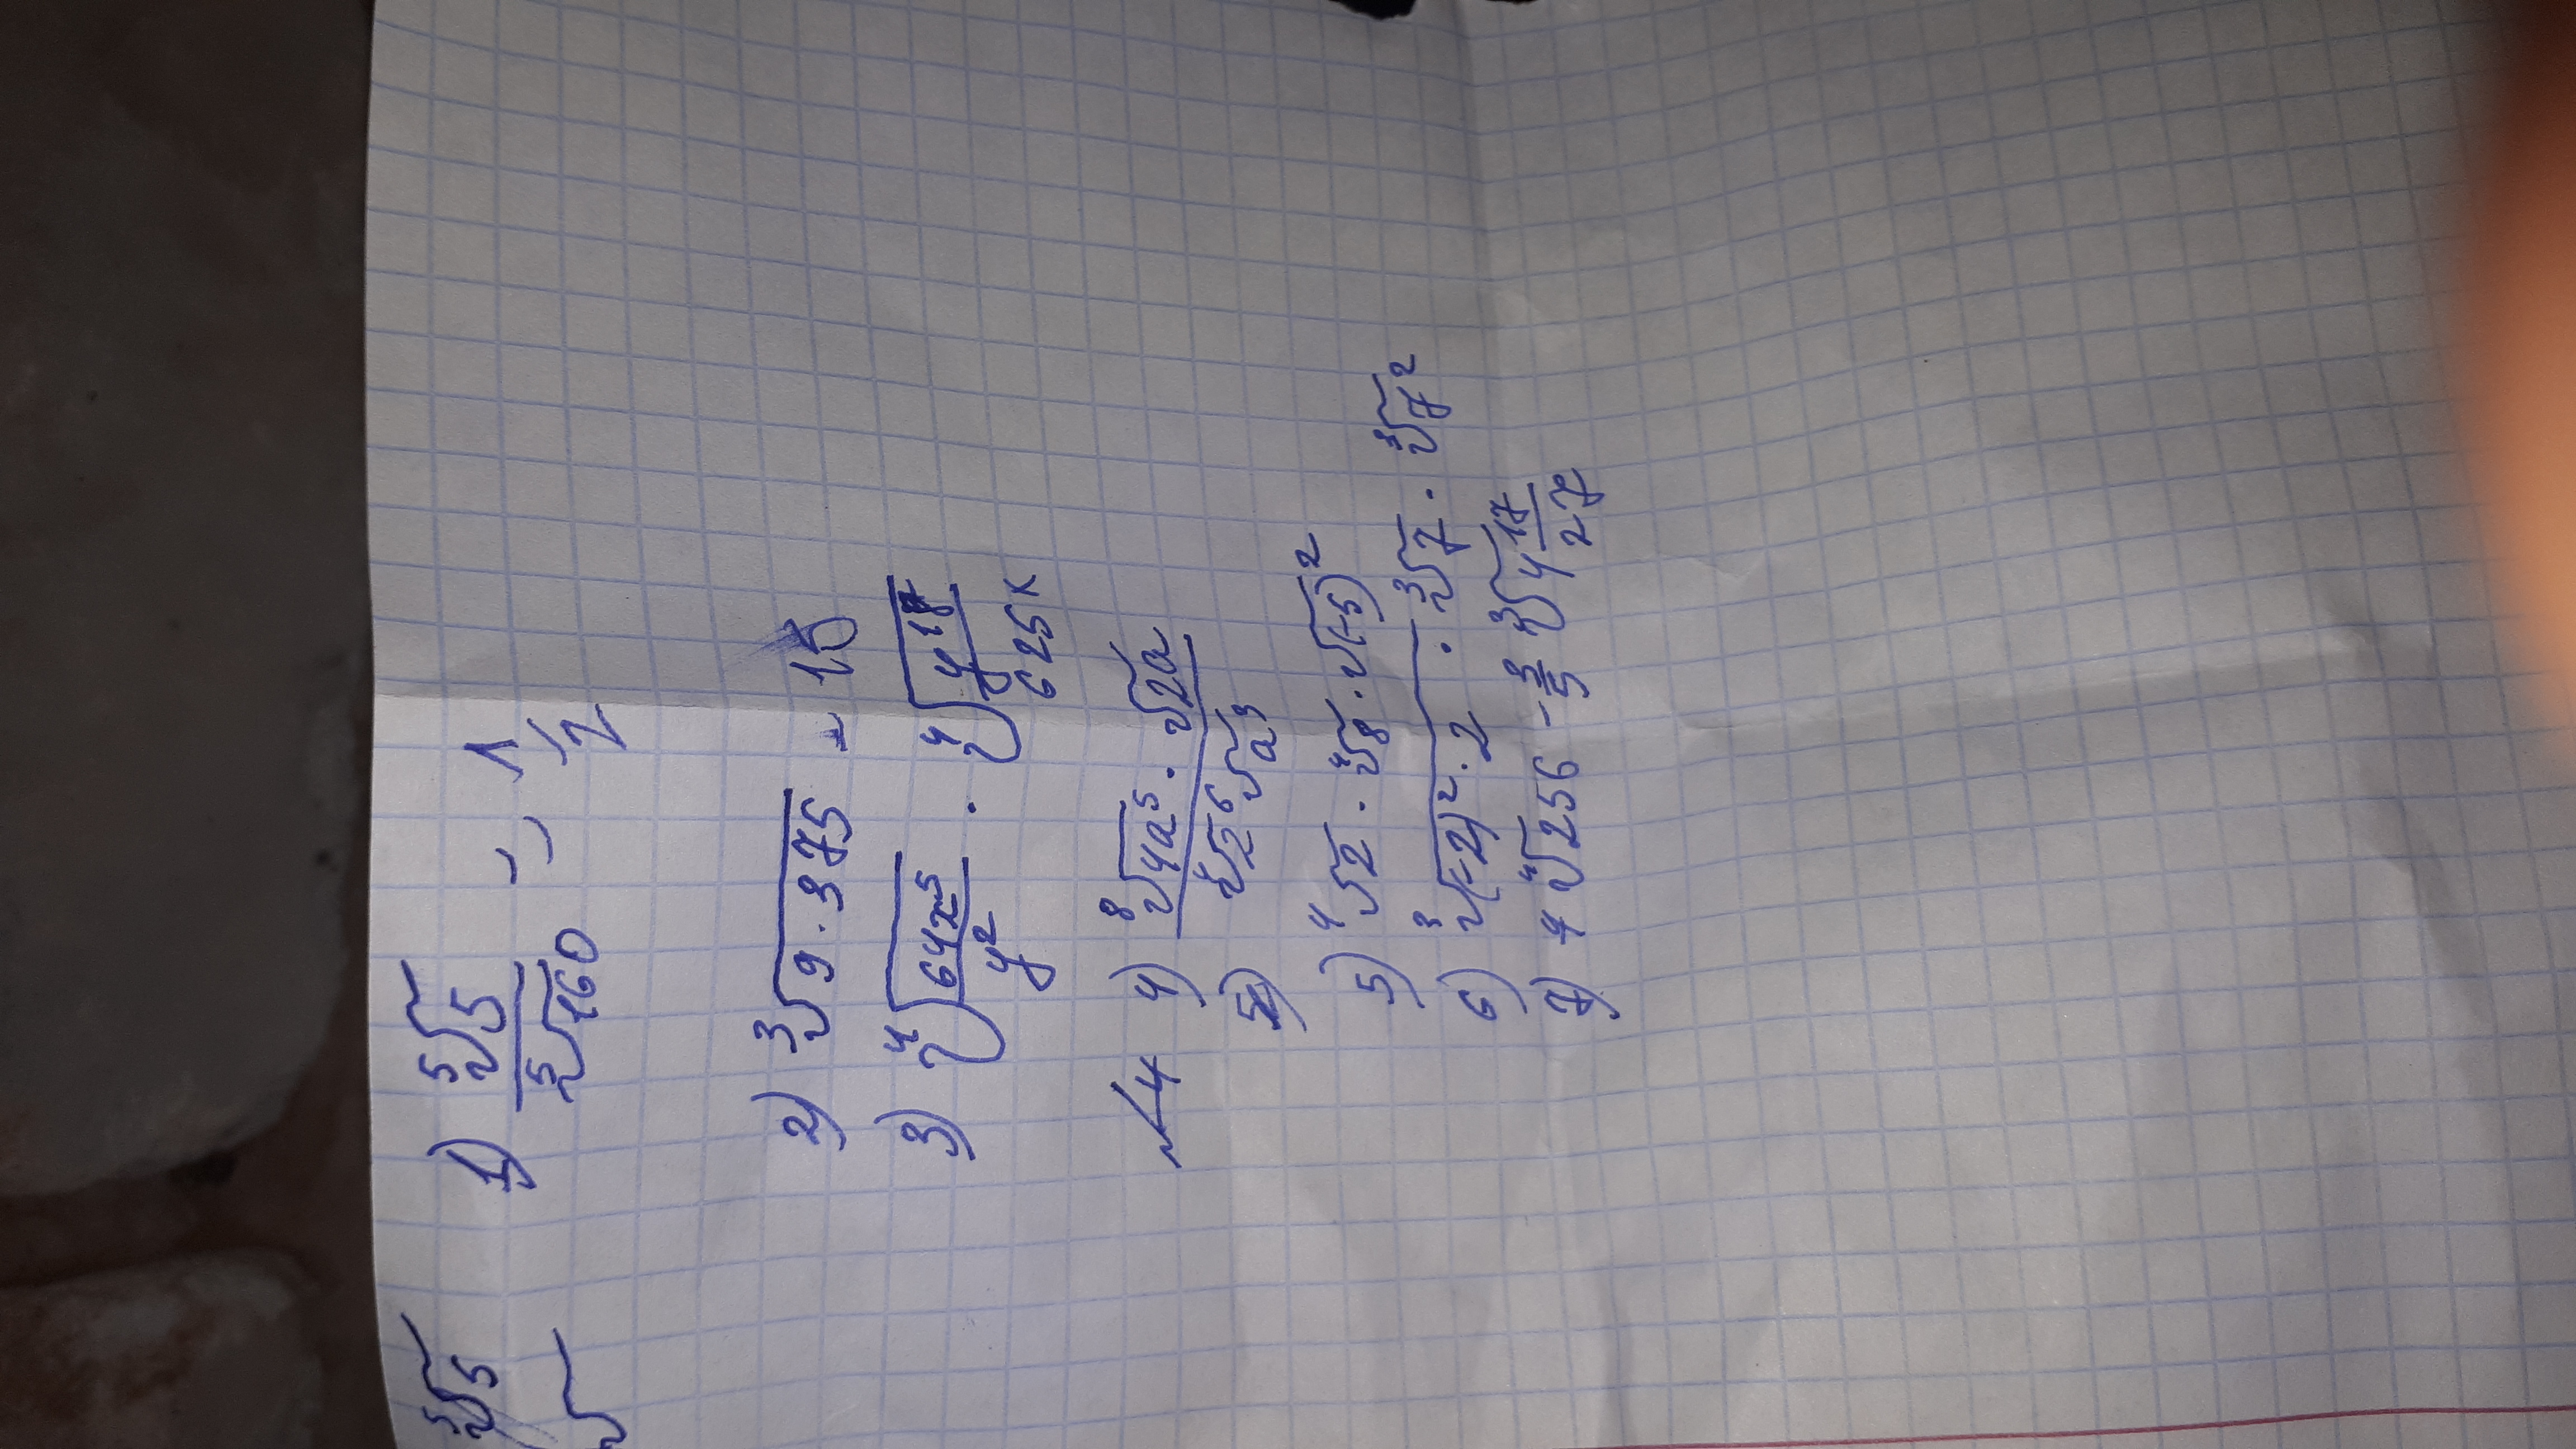 ⁵√5
√
1) ⁵√5 / ⁵√160 = 1/2
2) ³√9·375 = 15
3) ⁴√(64x⁵/y²) · ⁴√(y¹⁸/625x)
√4 4) ⁸√4a⁵ · √2a / √2⁶ √a³
5) ⁴√2 · ⁴√8 · √(-5)²
6) ³√(-2)²·2 · ³√7 · ³√7²
7) 4 ⁴√256 - 3/5 ³√4 17/27